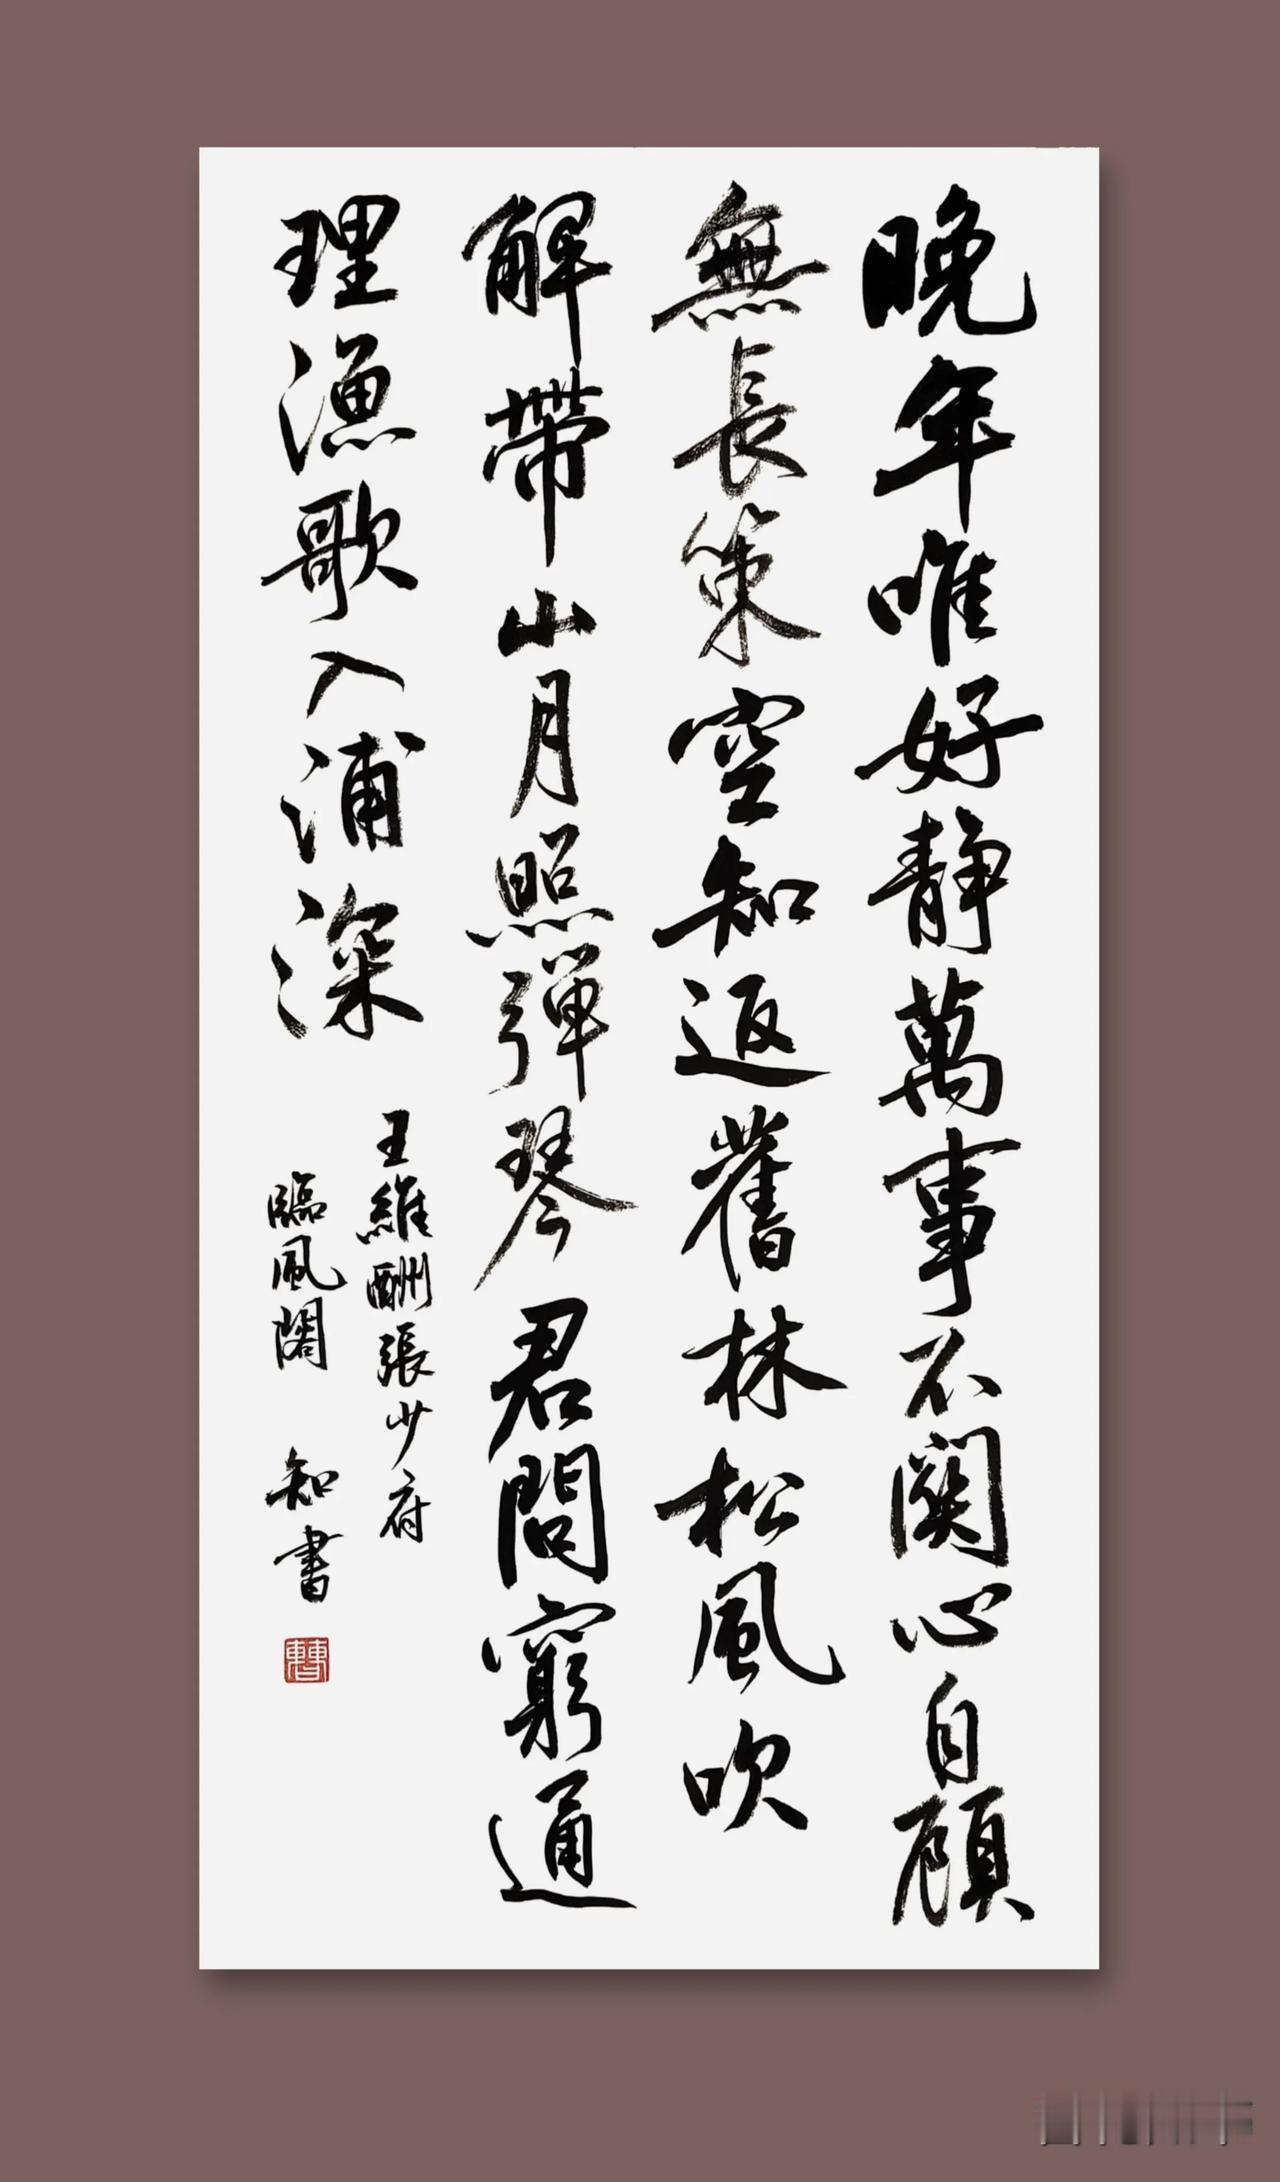 晚年唯好静萬事不關心自顧
無長策空知返舊林松風吹
解帶山月照彈琴君問窮通
理漁歌入浦深
王維酬張少府
臨風閣 知書